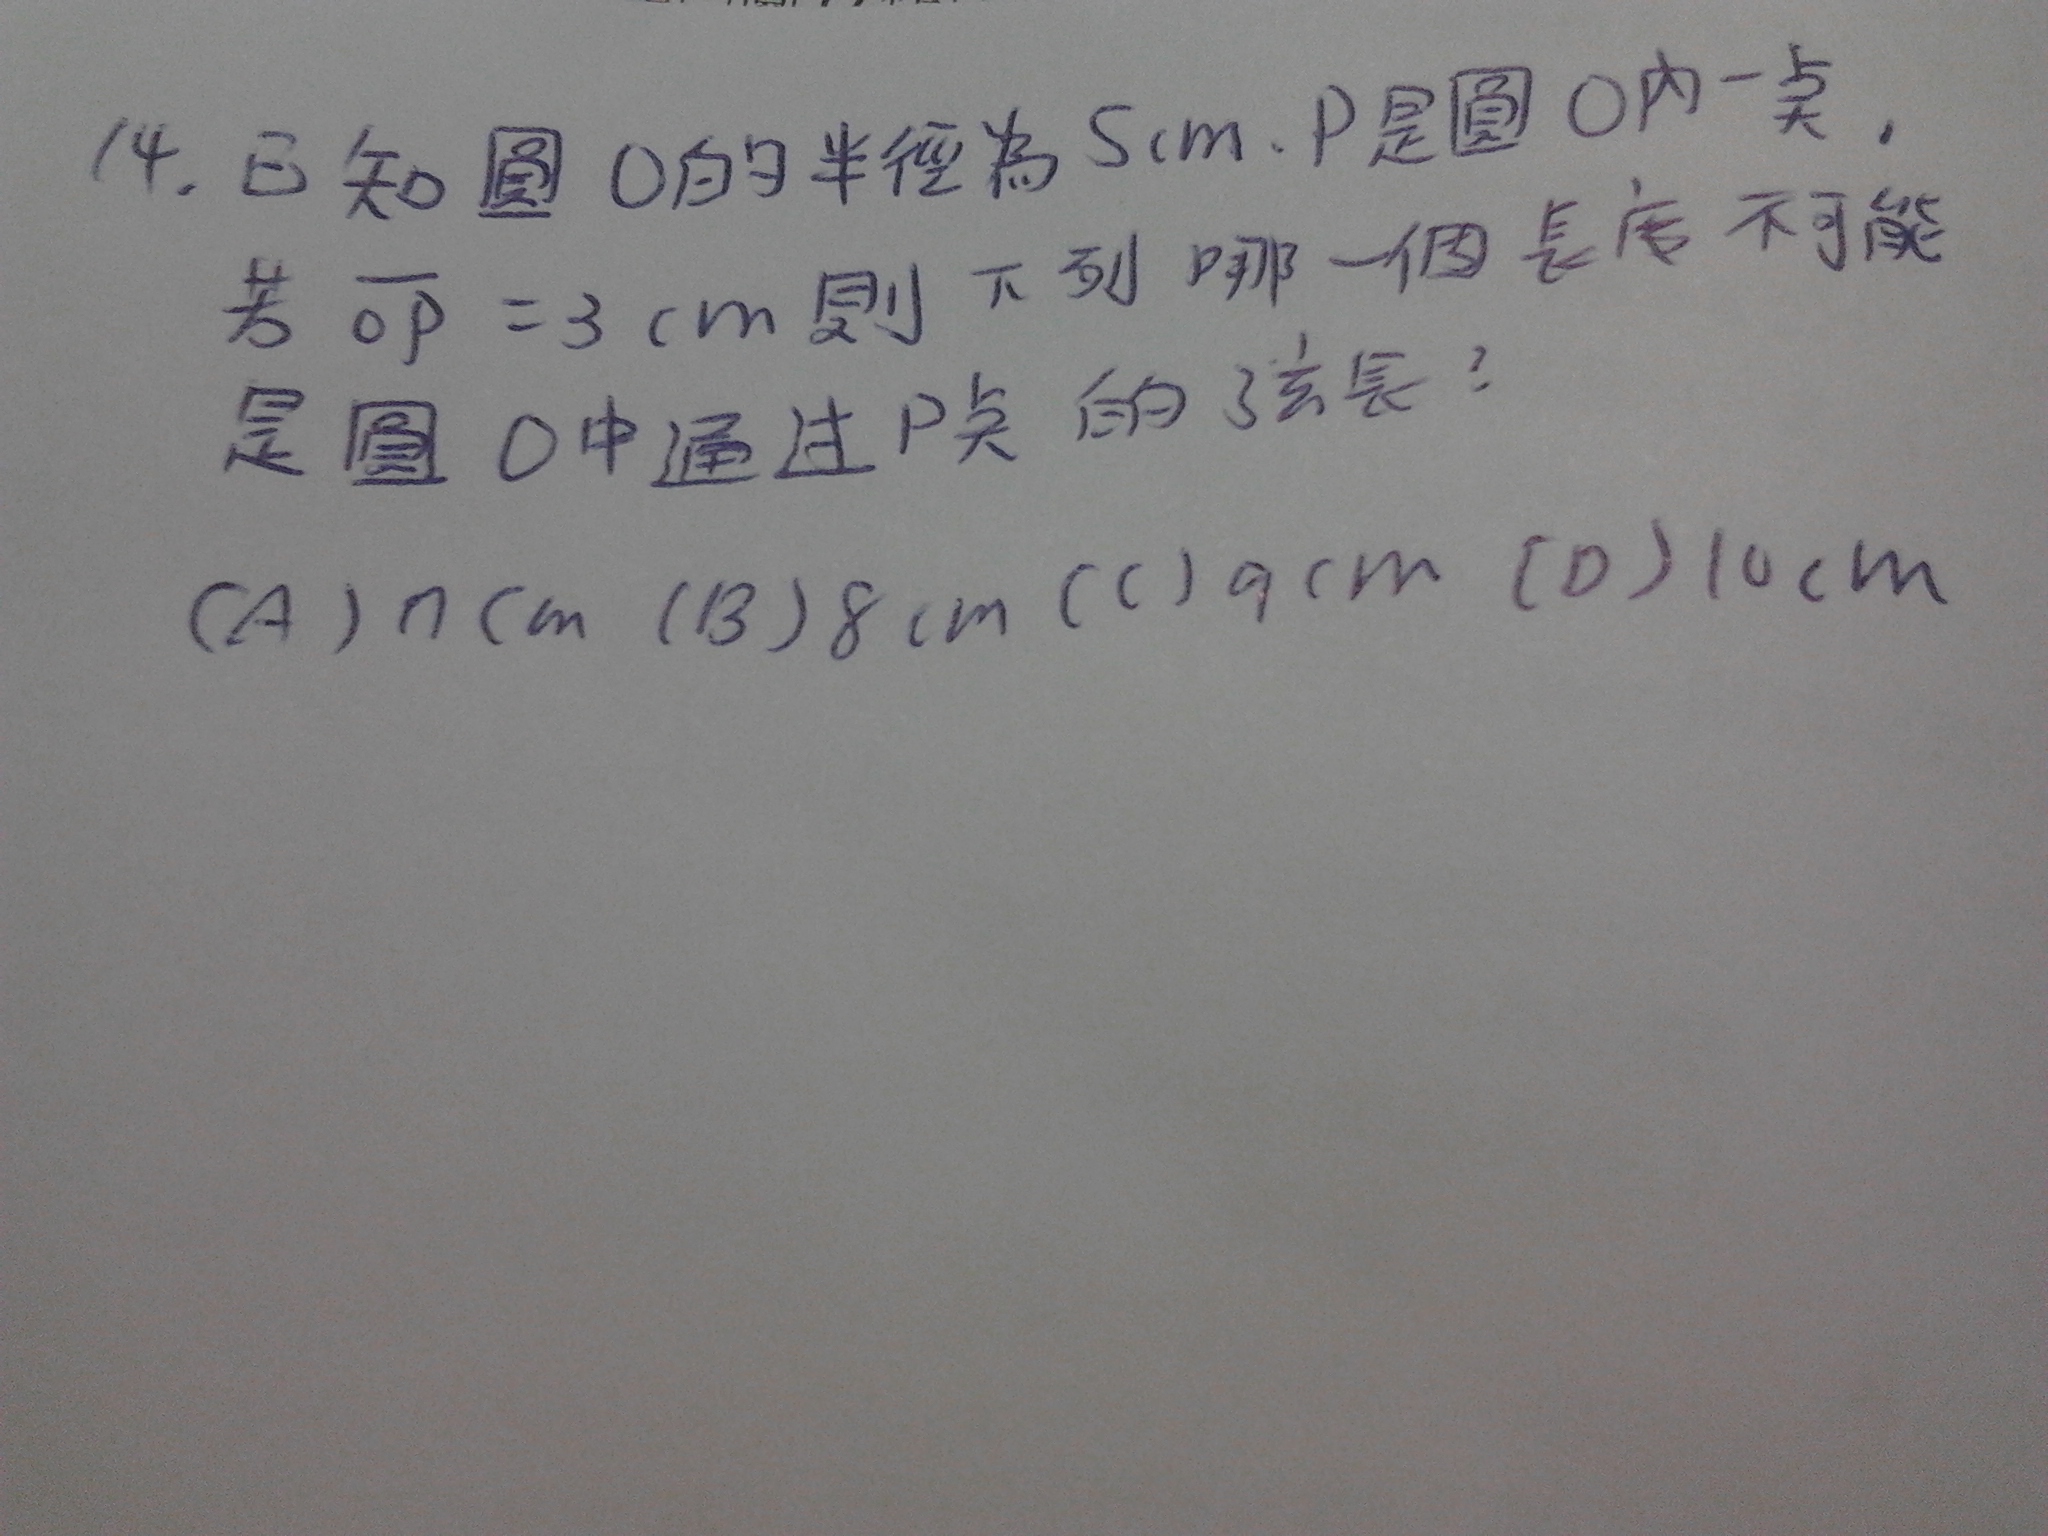 14. 已知圓O的半徑為5cm.P是圓O內一点,
若OP=3cm則下列哪一個長度不可能
是圓O中通过P点的弦長?
(A)7cm (B)8cm (C)9cm (D)10cm